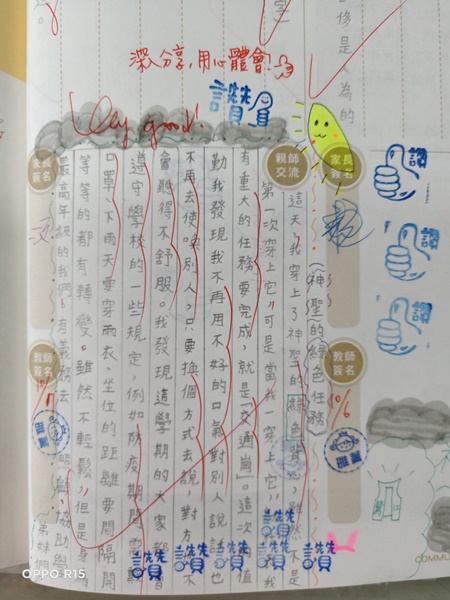 深入分享,用心體會!
讚
Very good!
家長簽名
親師交流
家長簽名
(神聖的綠色任務)
這天,我穿上了神聖的綠色
第一次穿上它,可是當我一穿上它,
有重大的任務要完成,就是「交通崗」。這次值
勤我發現我不再用不好的口氣對別人說話,也
不再去使喚別人,只要換個方式去說,對方
會聽得不舒服。我發現這學期的大家
遵守學校的一些規定,例如防疫期間
口罩、下雨天要穿雨衣、坐位的距離要間隔開
等等的都有轉變。雖然不輕鬆,但是身
最高年級的我們,有義務去
協助學
弟妹們
教師簽名
教師簽名
10/6
讚
讚
讚
讚讚讚讚讚
修是人為的
COMMU
OPPO R15